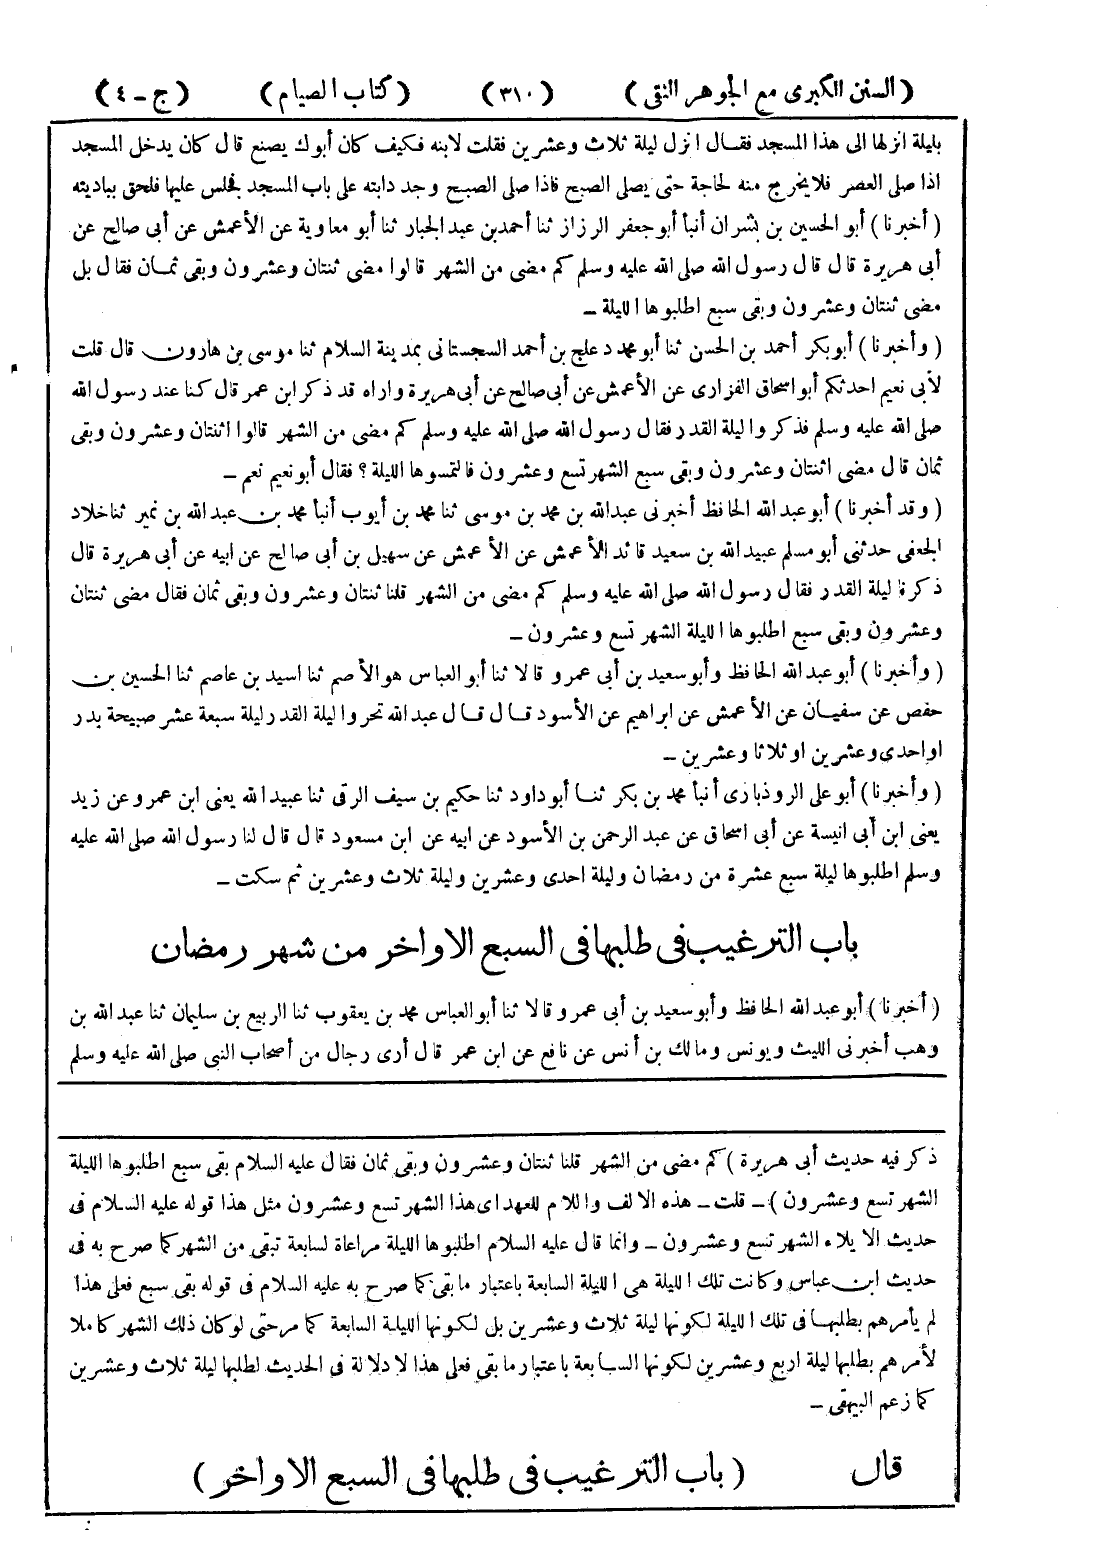 (السنن الكبرى مع الجوهر النقى) (٣١٠) (كتاب الصيام) (ج - ٤)
بليلة انزلها الى هذا المسجد فقال انزل ليلة ثلاث وعشرين فقلت لابنه فكيف كان أبوك يصنع قال كان يدخل المسجد
اذا صلى العصر فلا يخرج منه لحاجة حتى يصلى الصبح فاذا صلى الصبح وجد دابته على باب المسجد فجلس عليها فلحق بباديته
(أخبرنا) أبو الحسين بن بشران أنبأ أبو جعفر الرزاز ثنا أحمد بن عبد الجبار ثنا أبو معاوية عن الأعمش عن أبى صالح عن
أبى هريرة قال قال رسول الله صلى الله عليه وسلم كم مضى من الشهر قالوا مضى ثنتان وعشرون وبقى ثمان فقال بل
مضى ثنتان وعشرون وبقى سبع اطلبوها الليلة ــ
(وأخبرنا) أبو بكر أحمد بن الحسن ثنا أبو محمد دعلج بن أحمد السجستانى بمدينة السلام ثنا موسى بن هارون قال قلت
لأبى نعيم احدثكم أبو اسحاق الفزارى عن الأعمش عن أبى صالح عن أبى هريرة واراه قد ذكر ابن عمر قال كنا عند رسول الله
صلى الله عليه وسلم فذكروا ليلة القدر فقال رسول الله صلى الله عليه وسلم كم مضى من الشهر قالوا اثنتان وعشرون وبقى
ثمان قال مضى اثنتان وعشرون وبقى سبع الشهر تسع وعشرون فالتمسوها الليلة ؟ فقال أبو نعيم نعم ــ
(وقد أخبرنا) أبو عبد الله الحافظ أخبرنى عبد الله بن محمد بن موسى ثنا محمد بن أيوب أنبأ محمد بن عبد الله بن نمير ثنا خلاد
الجعفى حدثنى أبو مسلم عبيد الله بن سعيد قائد الأعمش عن الأعمش عن سهيل بن أبى صالح عن ابيه عن أبى هريرة قال
ذكرنا ليلة القدر فقال رسول الله صلى الله عليه وسلم كم مضى من الشهر قلنا ثنتان وعشرون وبقى ثمان فقال مضى ثنتان
وعشرون وبقى سبع اطلبوها الليلة الشهر تسع وعشرون ــ
(وأخبرنا) أبو عبد الله الحافظ وأبو سعيد بن أبى عمرو قالا ثنا أبو العباس هو الأصم ثنا اسيد بن عاصم ثنا الحسين بن
حفص عن سفيان عن الأعمش عن ابراهيم عن الأسود قال قال عبد الله تحروا ليلة القدر ليلة سبعة عشر صبيحة بدر
او احدى وعشرين او ثلاثا وعشرين ــ
(وأخبرنا) أبو على الروذبارى أنبأ محمد بن بكر ثنا أبو داود ثنا حكيم بن سيف الرقى ثنا عبيد الله يعنى ابن عمرو عن زيد
يعنى ابن أبى انيسة عن أبى اسحاق عن عبد الرحمن بن الأسود عن ابيه عن ابن مسعود قال قال لنا رسول الله صلى الله عليه
وسلم اطلبوها ليلة سبع عشرة من رمضان وليلة احدى وعشرين وليلة ثلاث وعشرين ثم سكت ــ
باب الترغيب فى طلبها فى السبع الاواخر من شهر رمضان
(أخبرنا) أبو عبد الله الحافظ وأبو سعيد بن أبى عمرو قالا ثنا أبو العباس محمد بن يعقوب ثنا الربيع بن سليمان ثنا عبد الله بن
وهب أخبرنى الليث ويونس ومالك بن أنس عن نافع عن ابن عمر قال أرى رجال من أصحاب النبى صلى الله عليه وسلم
ذكر فيه حديث أبى هريرة) كم مضى من الشهر قلنا ثنتان وعشرون وبقى ثمان فقال عليه السلام بقى سبع اطلبوها الليلة
الشهر تسع وعشرون) ــ قلت ــ هذه الالف واللام للعهد اى هذا الشهر تسع وعشرون مثل هذا قوله عليه السلام فى
حديث الايلاء الشهر تسع وعشرون ــ وانما قال عليه السلام اطلبوها الليلة مراعاة لسابعة تبقى من الشهر كما صرح به فى
حديث ابن عباس وكانت تلك الليلة هى الليلة السابعة باعتبار ما بقى كما صرح به عليه السلام فى قوله بقى سبع فعلى هذا
لم يأمرهم بطلبها فى تلك الليلة لكونها ليلة ثلاث وعشرين بل لكونها الليلة السابعة كما مر حتى لو كان ذلك الشهر كاملا
لأمرهم بطلبها ليلة اربع وعشرين لكونها السابعة باعتبار ما بقى فعلى هذا لا دلالة فى الحديث لطلبها ليلة ثلاث وعشرين
كما زعم البيهقى ــ
قال (باب الترغيب فى طلبها فى السبع الاواخر)